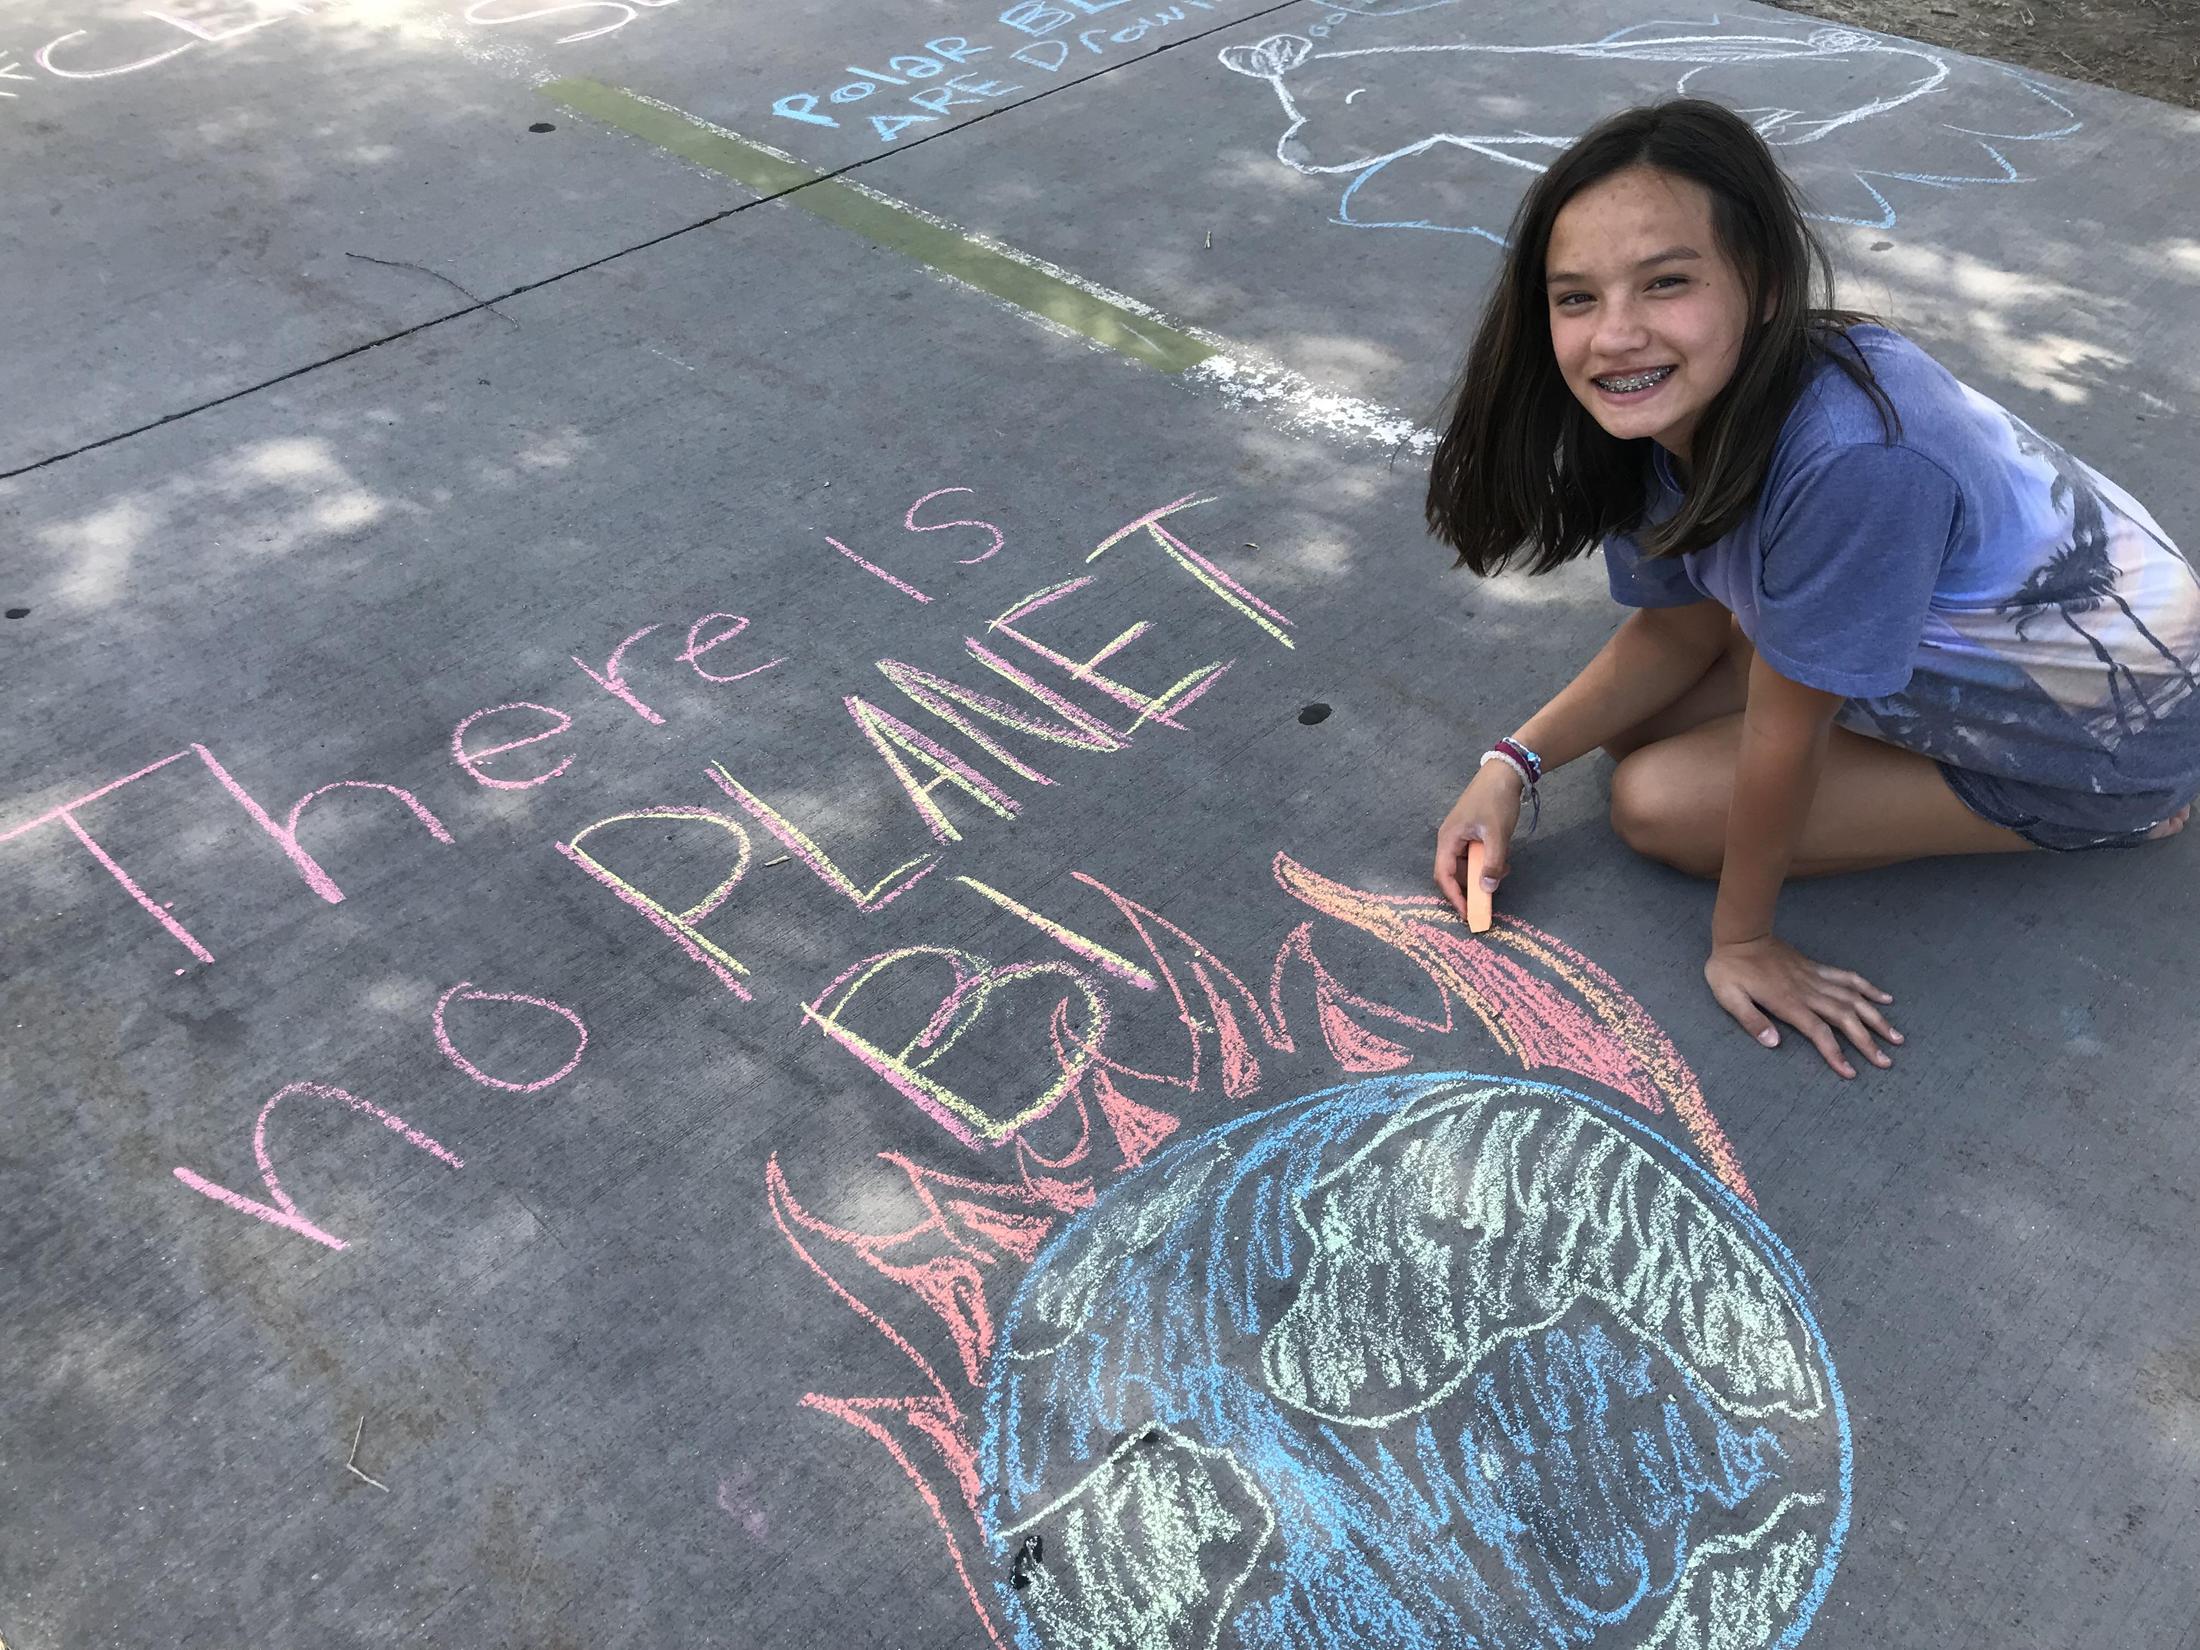 PolaR
ARE
There is
no PLANET
B!